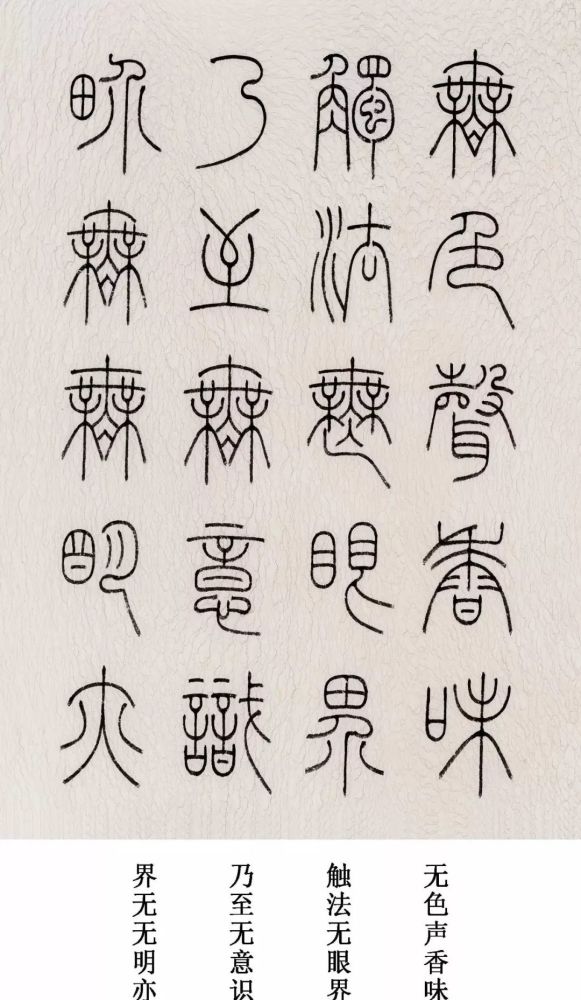 無色聲香味
觸法無眼界
乃至無意識
界無無明亦
无色声香味
触法无眼界
乃至无意识
界无无明亦